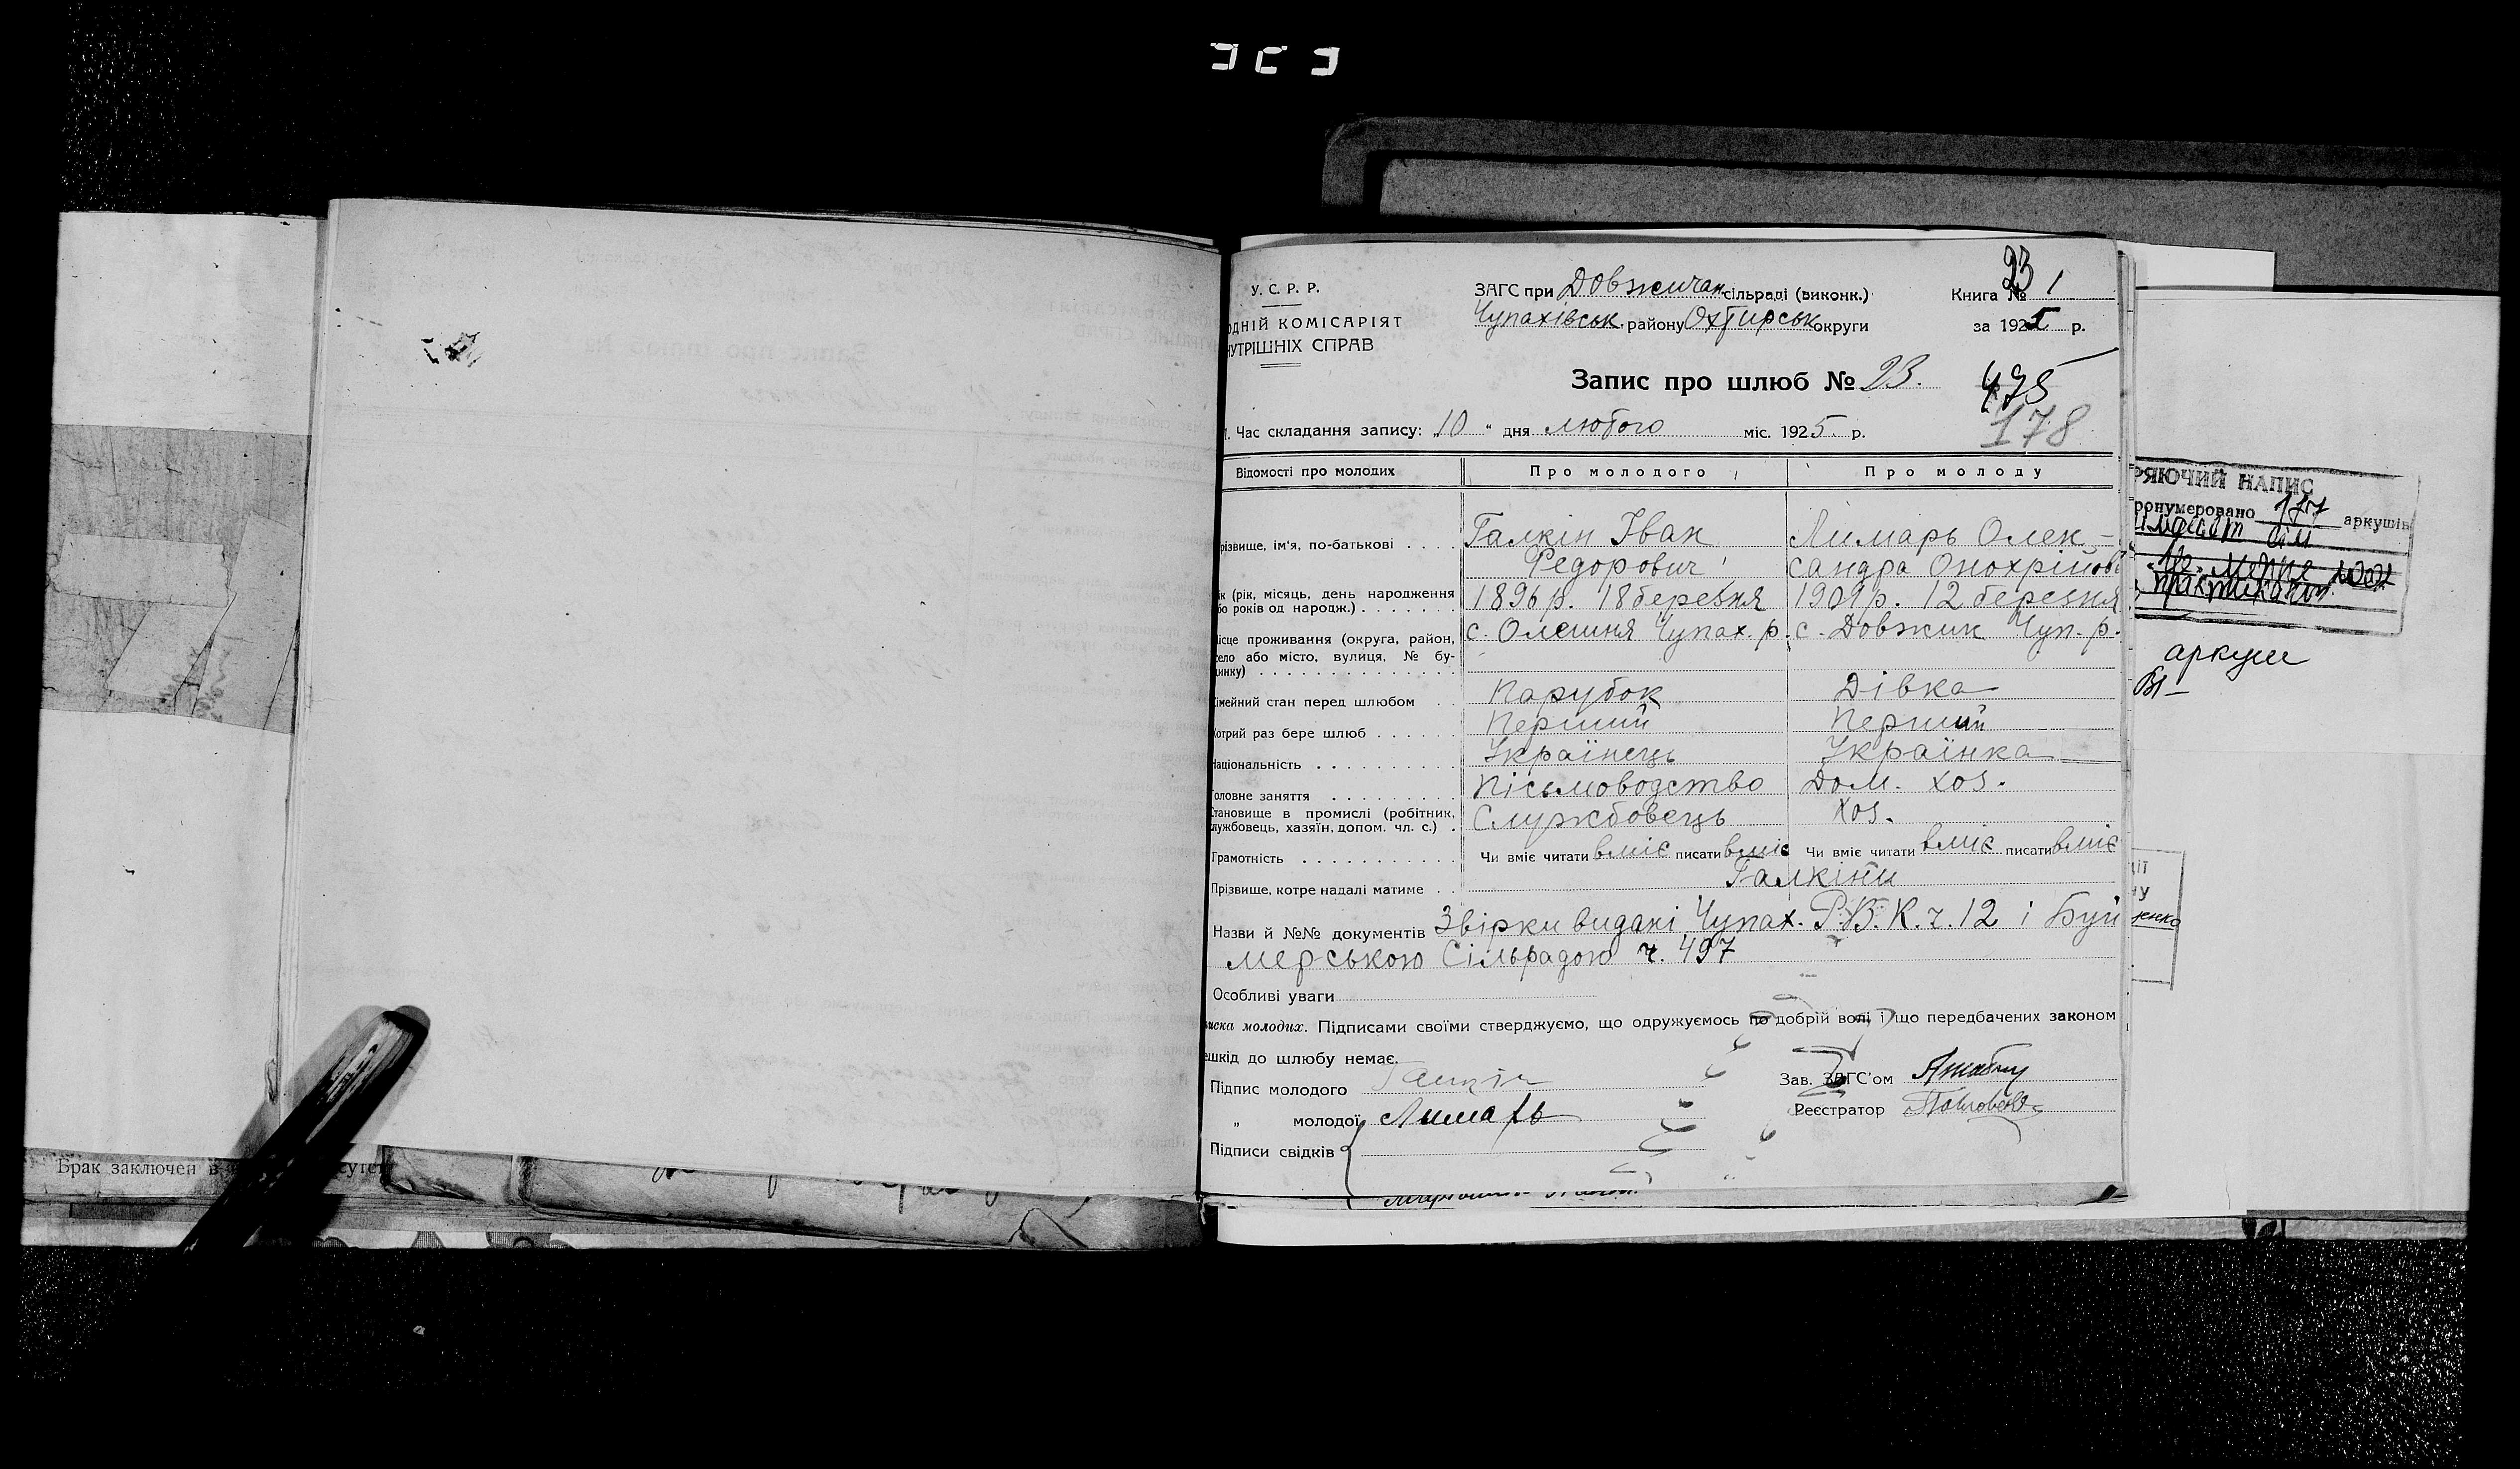 У. С. Р. Р.
ОДНІЙ КОМІСАРІЯТ
НУТРІШНІХ СПРАВ
ЗАГС при Довжичан. сільраді (виконк.)
Чупахівськ. району Охтирськ округи
23
Книга № 1
за 1925 р.
Запис про шлюб № 23.
475
178
1. Час складання запису: „10“ дня лютого міс. 1925 р.
Відомості про молодих Про молодого Про молоду
різвище, ім'я, по-батькові Галкін Іван Лимарь Олек-
Федорович сандра Онохріїов
ік (рік, місяць, день народження 1896 р. 18 березня 1901 р. 12 березня
бо років од народж.)
ісце проживання (округа, район, с. Олешня Чупах. р. с. Довжик Чуп. р.
село або місто, вулиця, № бу-
динку)
Сімейний стан перед шлюбом Парубок Дівка
Котрий раз бере шлюб Перший Перший
Національність Українець Українка
Головне заняття Пісьмоводство Дом. хоз.
Становище в промислі (робітник, Службовець Хоз.
службовець, хазяїн, допом. чл. с.)
Грамотність Чи вміє читати вміє писати вміє Чи вміє читати вміє писати вміє
Прізвище, котре надалі матиме Галкіни
Назви й №№ документів Звірки видані Чупах. Р.В.К. ч. 12 і Буй
мерською Сільрадою ч. 497
Особливі уваги
писка молодих. Підписами своїми стверджуємо, що одружуємось по добрій волі і що передбачених законом
ешкід до шлюбу немає.
Підпис молодого Галкін
„ молодої Лимарь
Підписи свідків
Зав. ЗАГС'ом
Реєстратор
РЯЮЧИЙ НАПИС
ронумеровано 177 аркушів
аркуш
Брак заключен в